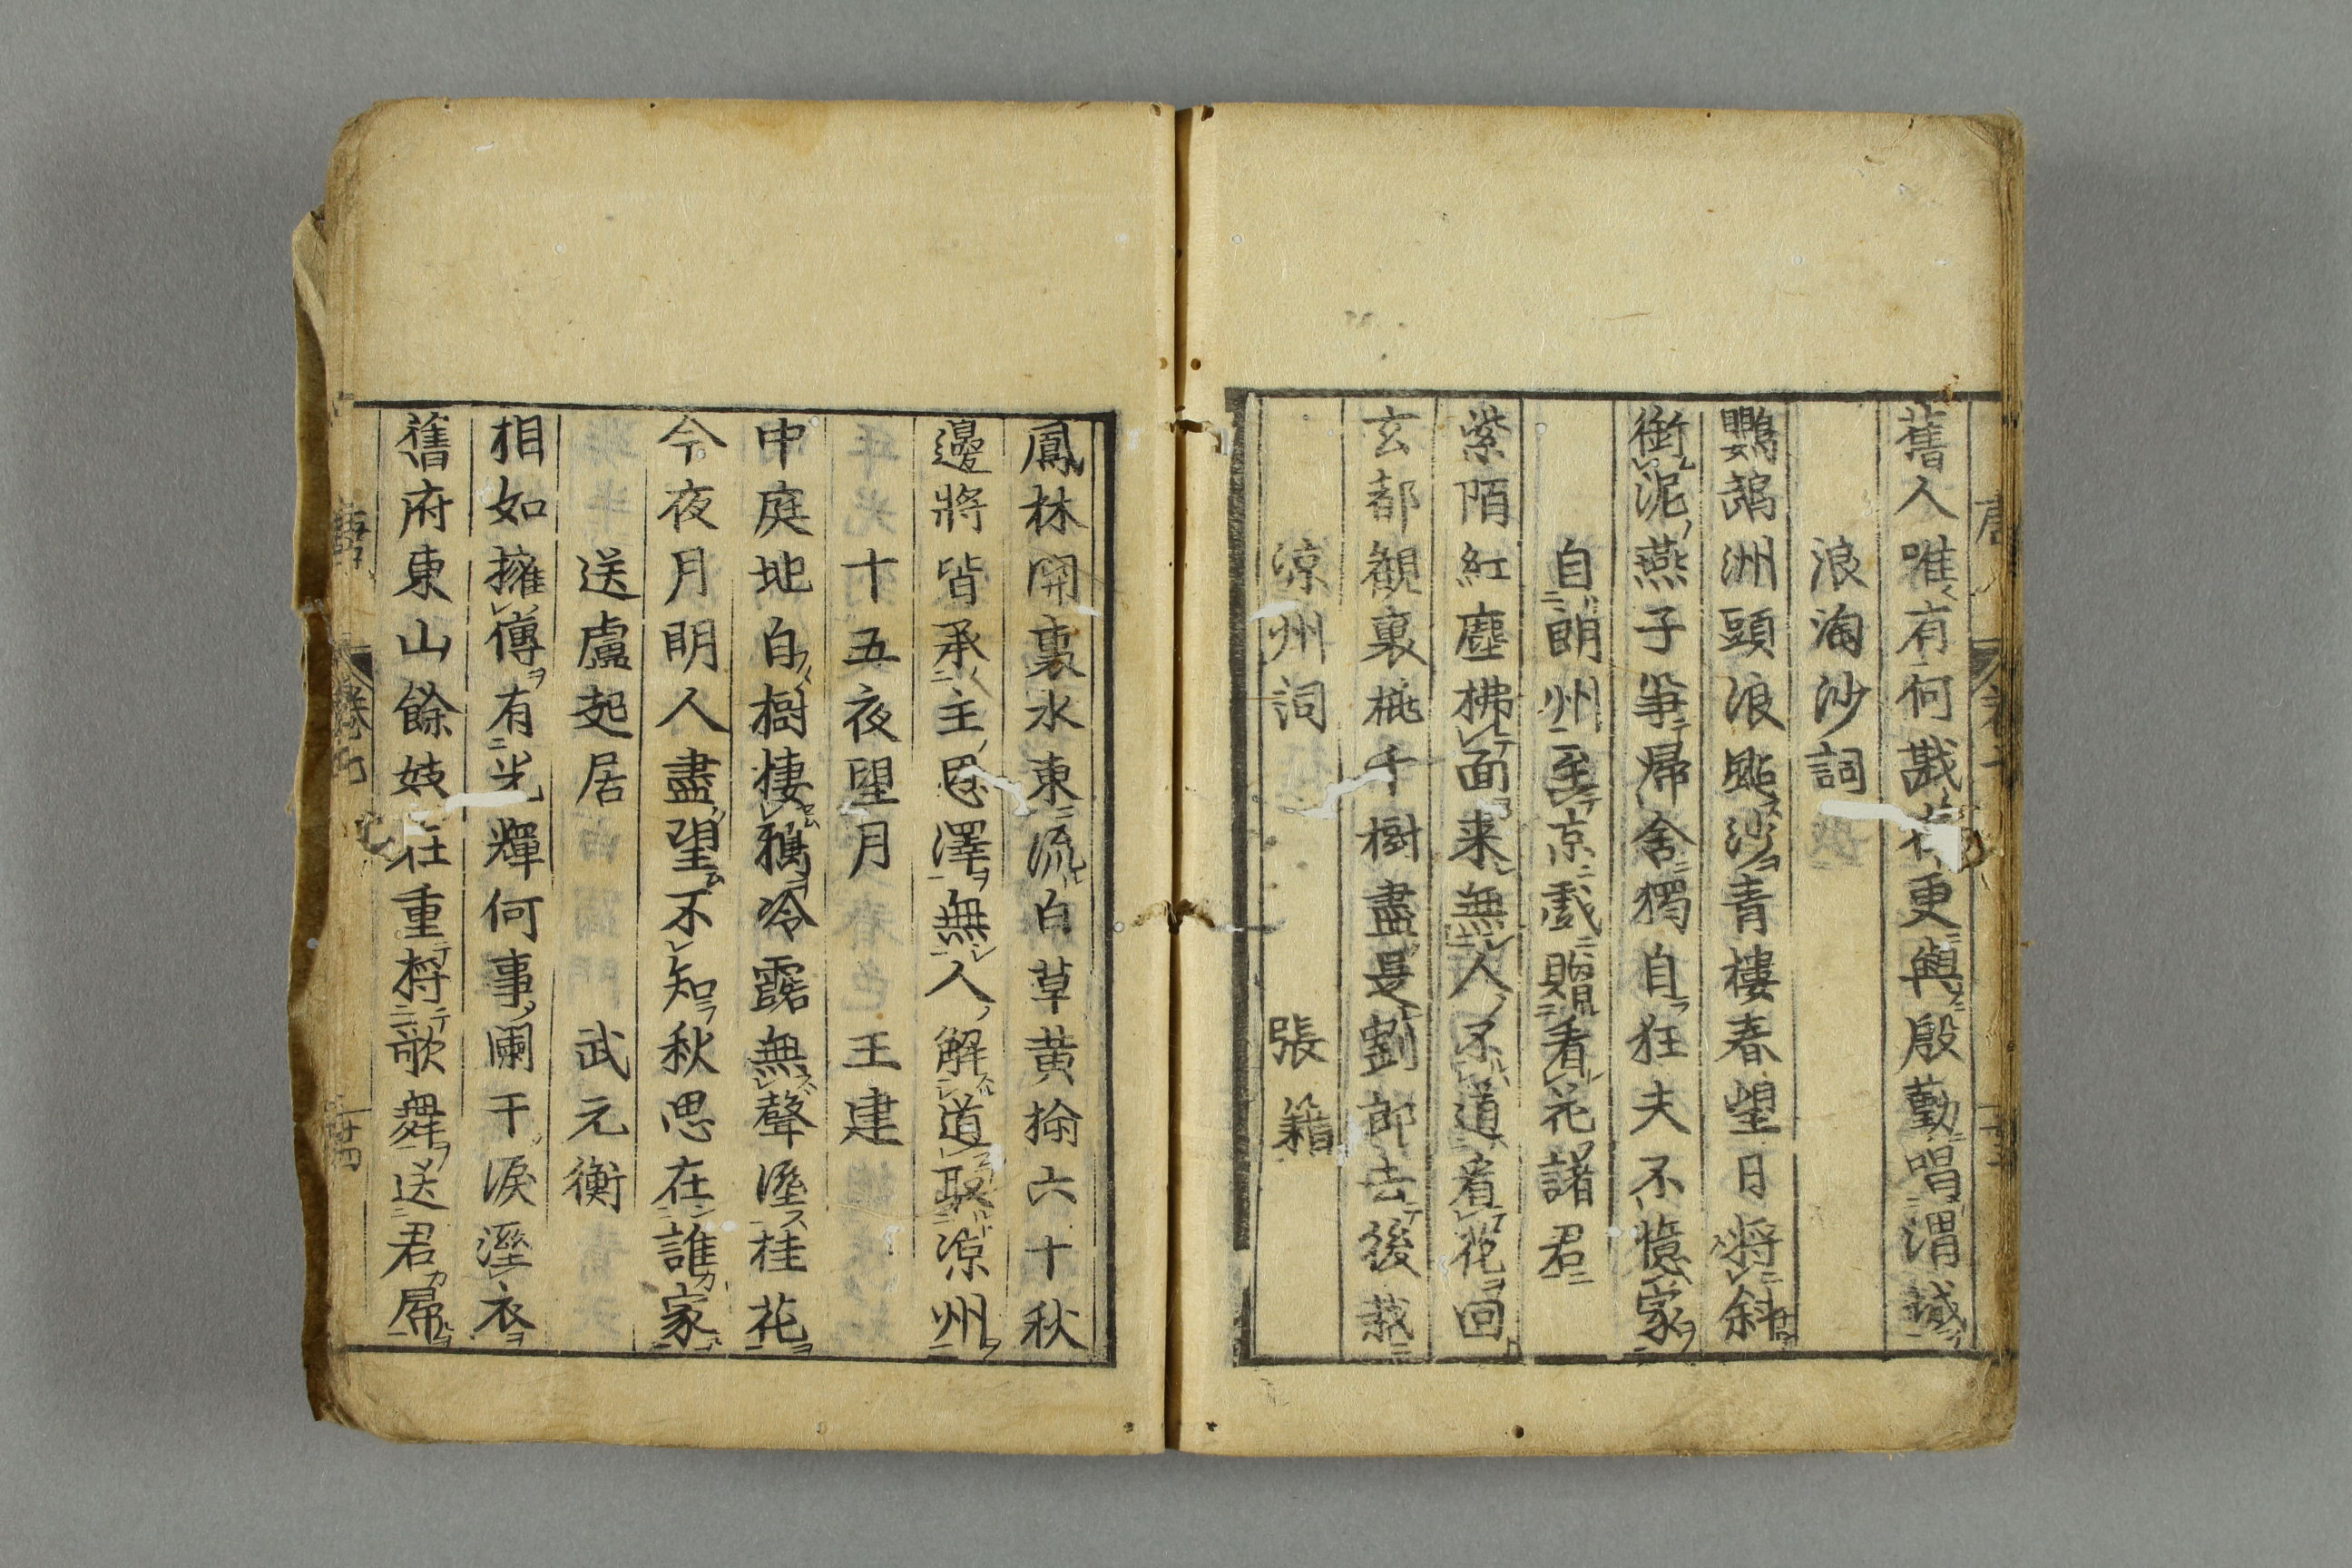 舊人唯有何戡在更與殷勤唱渭城
浪淘沙詞
鸚鵡洲頭浪颭沙青樓春望日將斜
銜泥燕子爭歸舍獨自狂夫不憶家
自朗州至京戲贈看花諸君
紫陌紅塵拂面来無人不道看花回
玄都観裏桃千樹盡是劉郎去後栽
涼州詞 張籍
鳳林関裏水東流白草黄揄六十秋
邊將皆承主恩澤無人解道取涼州
十五夜望月 王建
中庭地白樹棲鴉冷露無聲溼桂花
今夜月明人盡望不知秋思在誰家
送盧起居 武元衡
相如擁傳有光輝何事闌干淚溼衣
舊府東山餘妓在重將歌舞送君歸